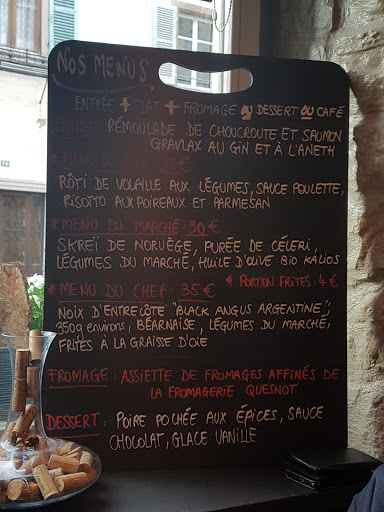 NOS MENUS
ENTRÉE + PLAT + FROMAGE OU DESSERT OU CAFÉ
RÉMOULADE DE CHOUCROUTE ET SAUMON
GRAVLAX AU GIN ET À L'ANETH
* MENU DU
RÔTI DE VOLAILLE AUX LÉGUMES, SAUCE POULETTE,
RISOTTO AUX POIREAUX ET PARMESAN
* MENU DU MARCHÉ : 30 €
SKREÏ DE NORVÈGE, PURÉE DE CÉLERI,
LÉGUMES DU MARCHÉ, HUILE D'OLIVE BIO KALIOS
* PORTION FRITES : 4 €
* MENU DU CHEF : 35 €
NOIX D'ENTRECÔTE "BLACK ANGUS ARGENTINE",
350g environs, BÉARNAISE, LÉGUMES DU MARCHÉ,
FRITES À LA GRAISSE D'OIE
FROMAGE : ASSIETTE DE FROMAGES AFFINÉS DE
LA FROMAGERIE QUESNOT
DESSERT : POIRE POCHÉE AUX ÉPICES, SAUCE
CHOCOLAT, GLACE VANILLE